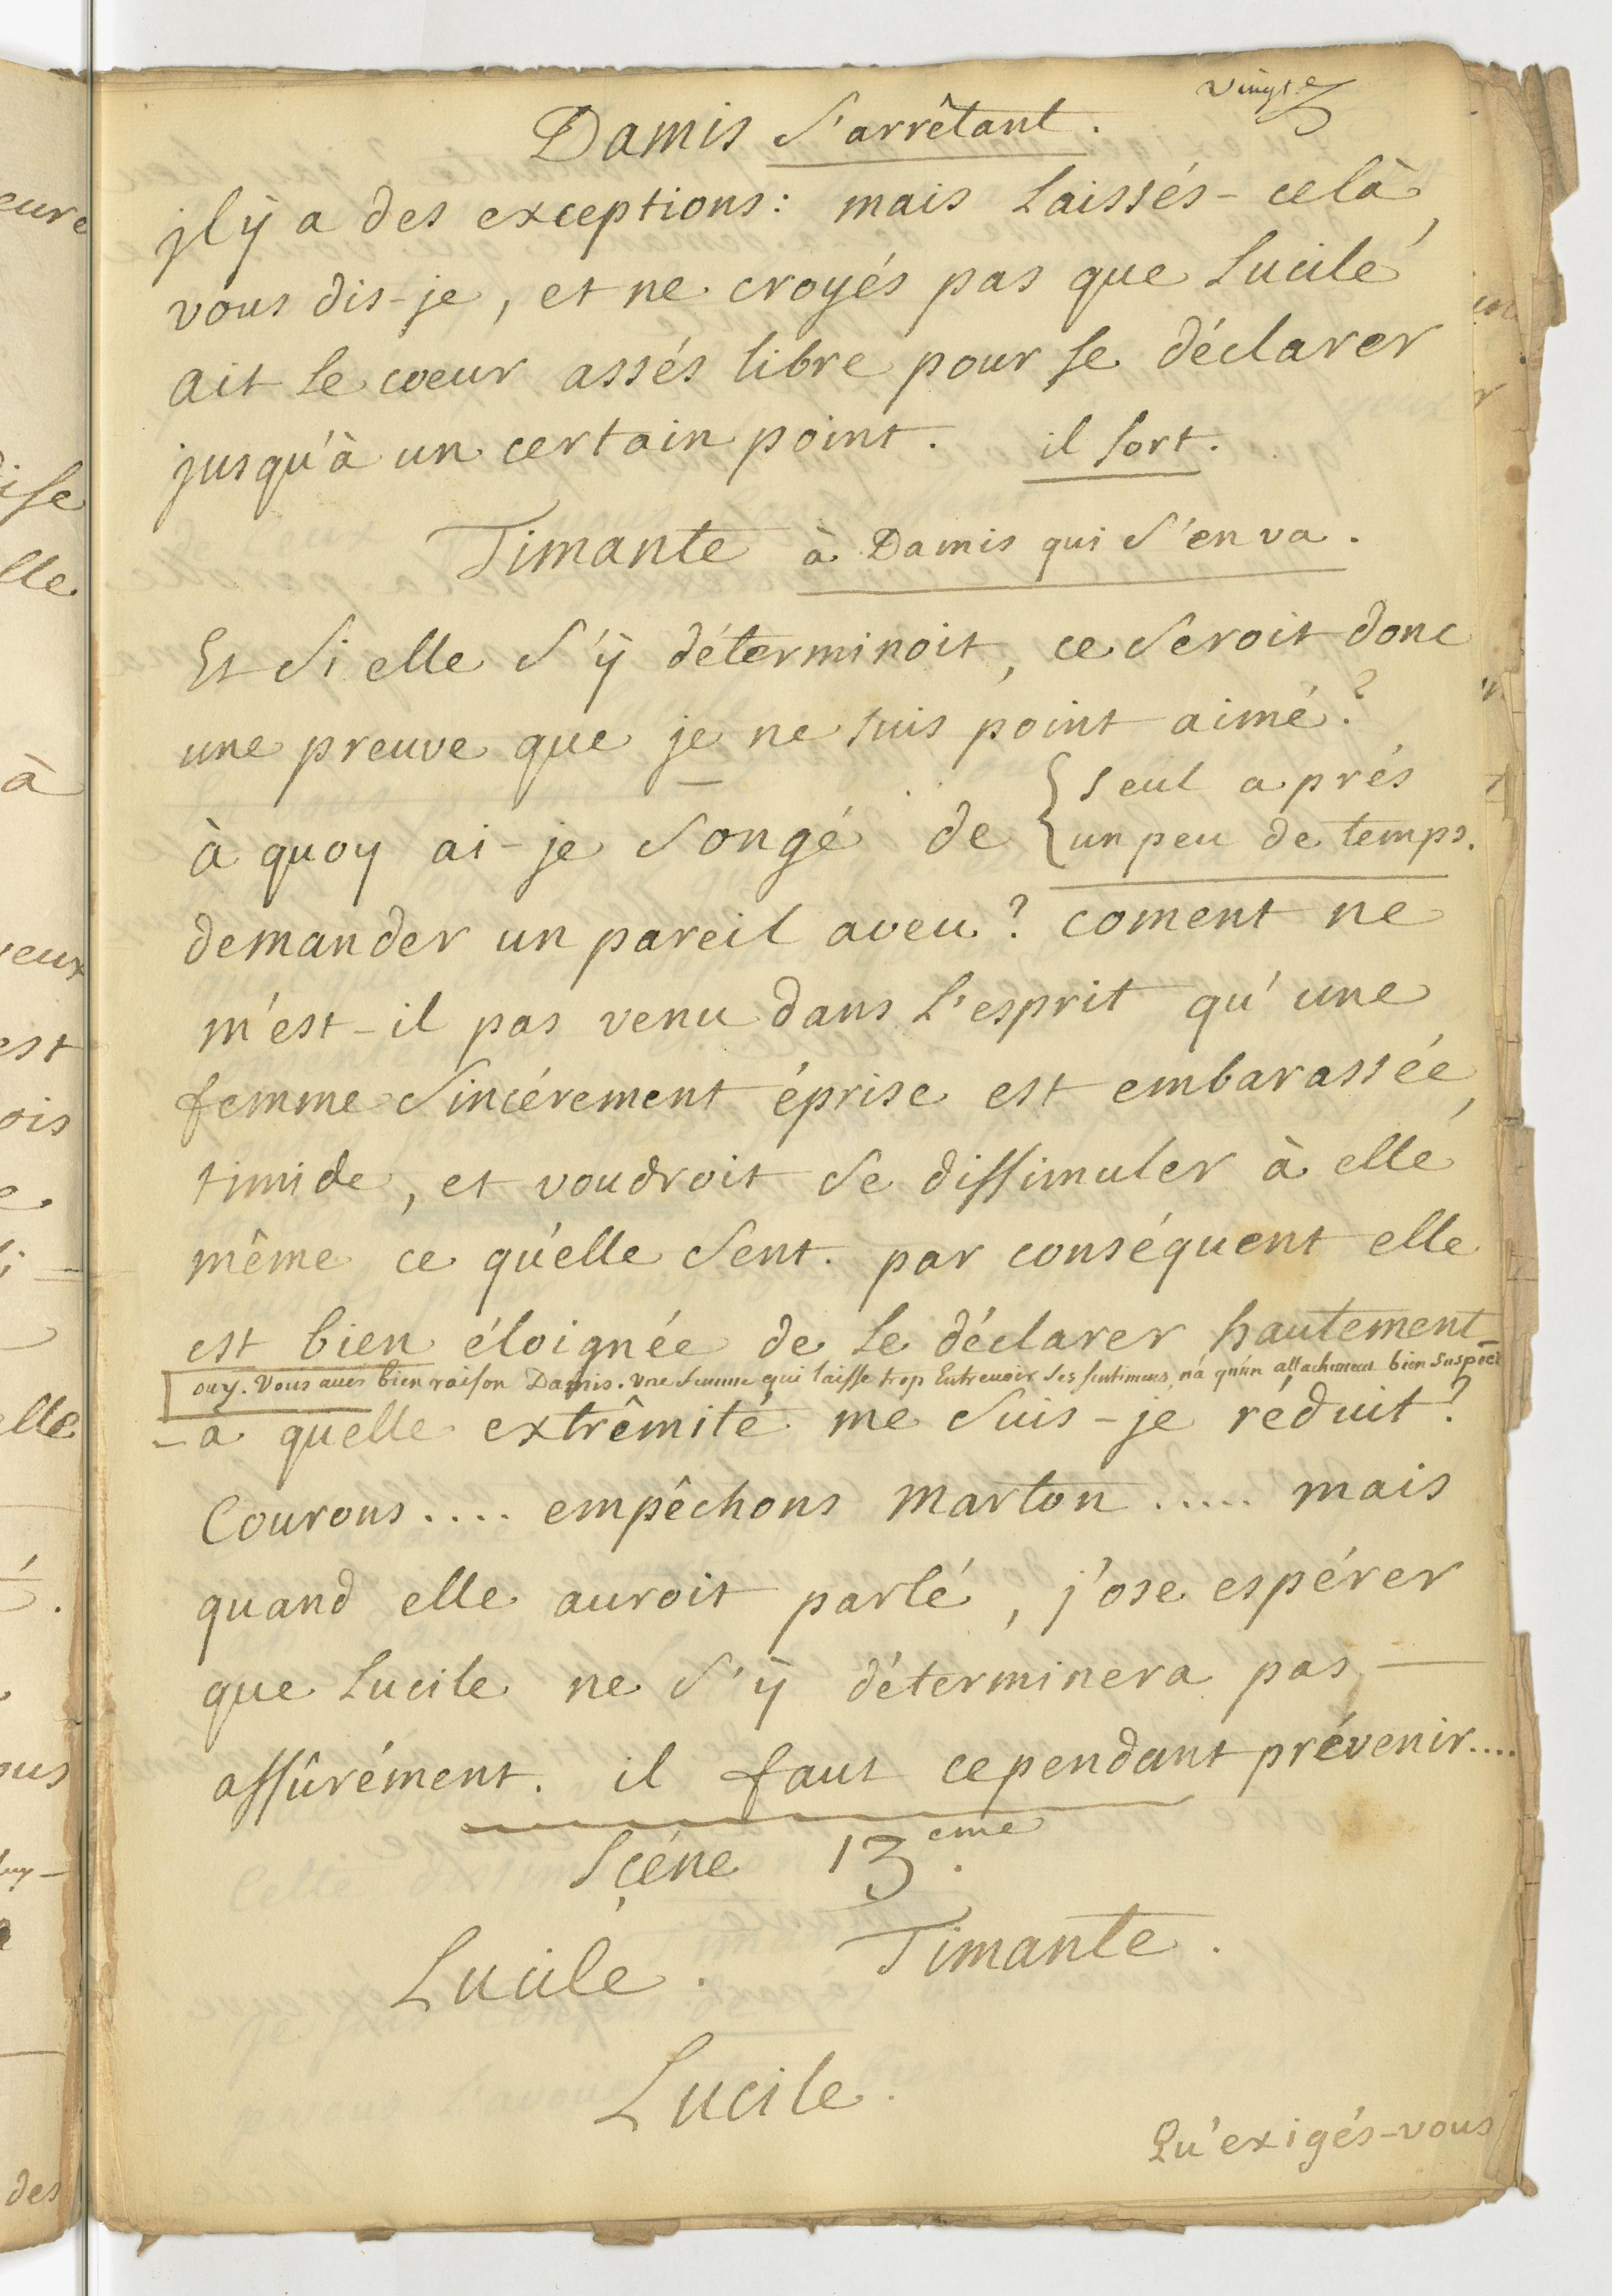 vingt
Damis s'arrêtant.
jl ÿ a des exceptions: mais laissés-celà,
vous dis-je, et ne croyés pas que Lucile
ait le coeur assés libre pour se déclarer
jusqu'à un certain point. il sort.
Timante à Damis qui s'en va.
Et si elle s'ÿ déterminoit, ce seroit donc
une preuve que je ne suis point aimé?
seul aprés
à quoy ai-je songé de { un peu de temps.
demander un pareil aveu? coment ne
m'est-il pas venu dans l'esprit qu'une
femme sincérement éprise est embarassée,
timide, et voudroit se dissimuler à elle
même ce qu'elle sent. par conséquent elle
est bien éloignée de le déclarer hautement-
ouy. vous avés bien raison Damis. une femme qui laisse trop entrevoir ses sentimens, n'a qu'un attachement bien suspect
-à quelle extrêmité me suis-je réduit?
Courons.... empêchons Marton ..... mais
quand elle auroit parlé, j'ose espérer
que Lucile ne s'ÿ déterminera pas —
assûrément. il faut cependant prévenir....
Scéne 13.eme
Lucile. Timante.
Lucile.
Qu'exigés-vous